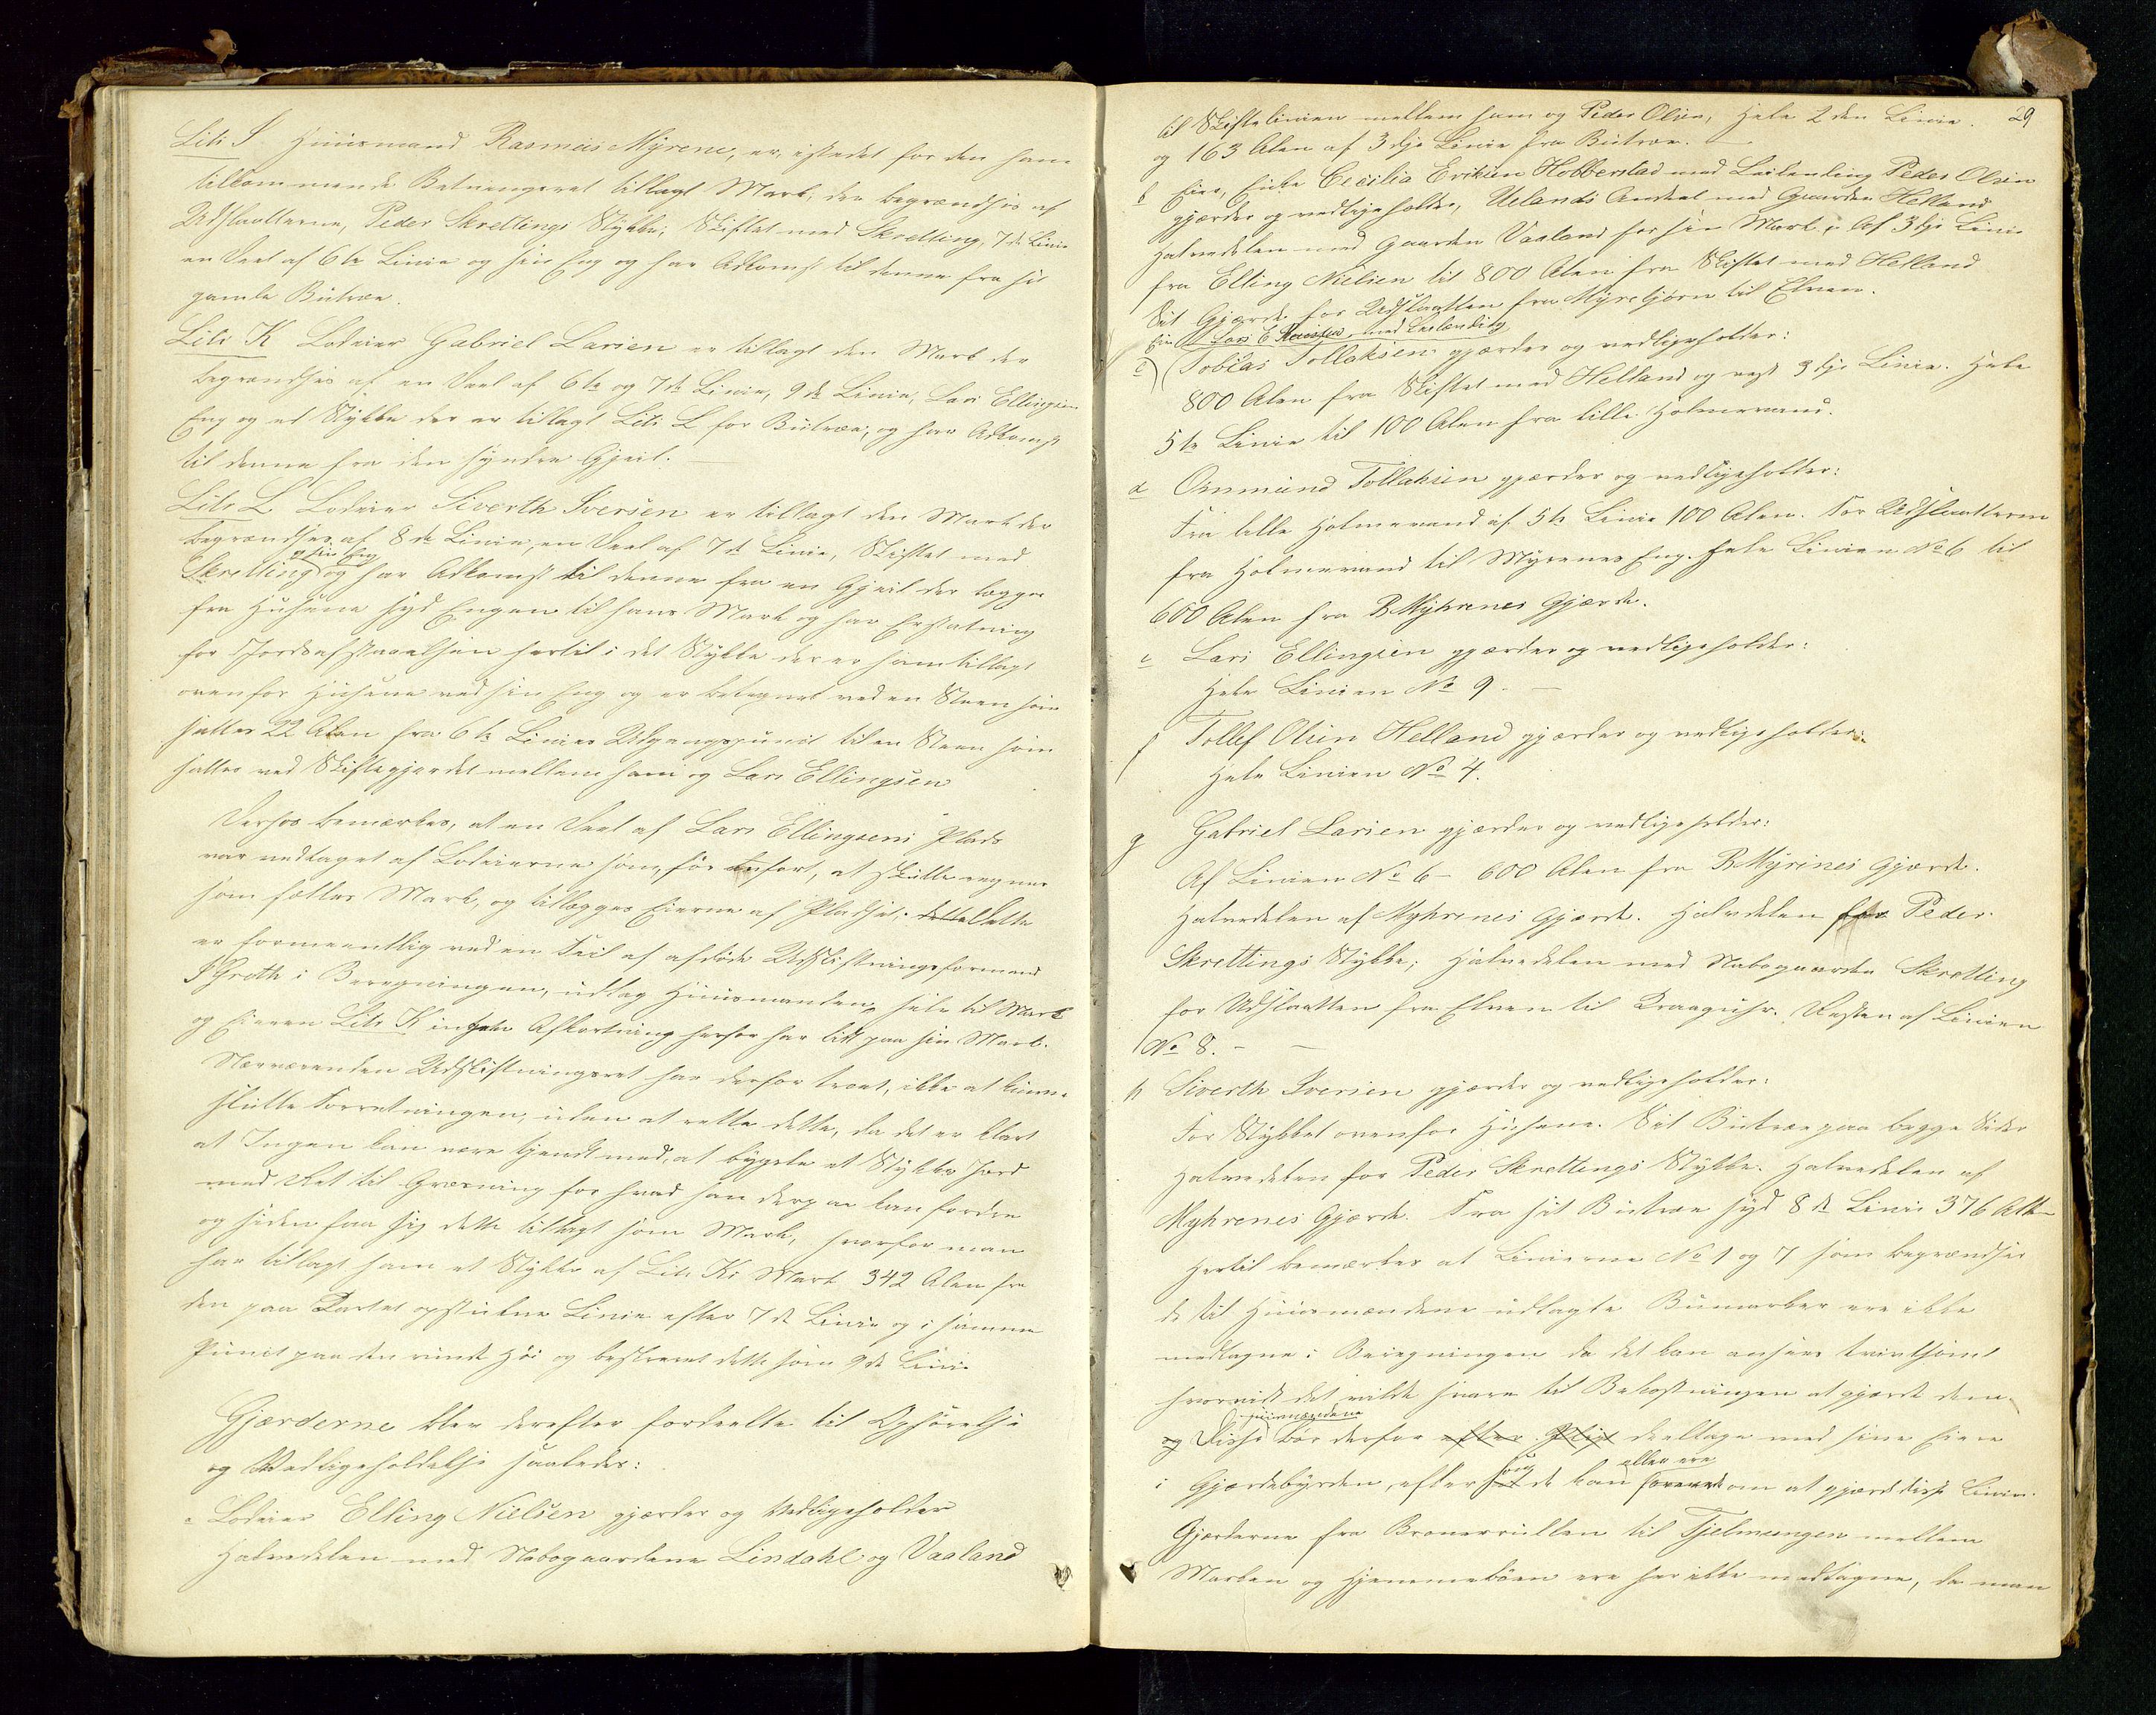 Litr I Huusmand Rasmus Myrene, er, istedet for den ham
tilkommende Betningsret tillagt Mark, der begrændses af
Udslaatterne, Peder Skrettings Stykke, Skiftet med Skretting, 7de Linie
en Deel af 6te Linie og sin Eng og har Adkomst til denne fra sit
gamle Butræe.
Litr K Lodeier Gabriel Larsen er tillagt den Mark der
begrændses af en Deel af 6te og 7de Linie, 9de Linie, Lars Ellingsen
Eng og et Stykke der er tillagt Litr L for Butræe, og har Adkomst
til denne fra den søndre Gjeil.
Litr L Lodeier Siverth Iversen er tillagt den Mark der
begrændses af 8de Linie, en Deel af 7de Linie, Skiftet med
Skretting og sin Eng og har Adkomst til denne fra en Gjeil der lægges
fra Husene syd Engen til hans Mark og har Erstatning
for Jordafstaaelsen hertil i det Stykke der er ham tillagt
ovenfor Husene ved sin Eng og er betegnet ved en Steen som
sættes 22 Alen fra 6te Linies Udgangspunct til en Steen som
sættes ved Skiftegjerdet mellem ham og Lars Ellingsen
Derhos bemærkes, at en Deel af Lars Ellingsens Plads
var vedtaget af Lodeierne som, før anført, at skulle regnes
som fælles Mark, og tillægges Eierne af Pladset; dette Dette
er formeentlig ved en Feil af afdøde Udskiftningsformand
I Groth i Beregningen, udlag Huusmanden, hele til Mark
og Eieren Litr K ingen Afkortning herfor har lidt paa sin Mark.
Nærværende Udskiftningsret har derfor troet, ikke at kunne
slutte Forretningen, uden at rette dette, da det er klart
at Ingen kan være tjent med, at bygsle et Stykke Jord
med Ret til Græsning for hvad han derpaa kan fordre
og siden faa sig dette tillagt som Mark, hvorfor man
har tillagt ham et Stykke af Litr Ks Mark 342 Alen fra
den paa Kartet opstukne Linie efter 7de Linie og i samme
Punct paa den runde Høi og beskrevet dette som 9de Linie
Gjærderne blev derefter fordeelte til Opførelse
og Vedligeholdelse saaledes:
a Lodeier Elling Nielsen gjærder og vedligeholder
Halvedelen med Nabogaardene Lindahl og Vaaland
29
til Skiftelinien mellem ham og Peder Olsen, Hele 2den Linie.
og 163 Alen af 3die Linie fra Butræe.
b Eier, Enke Cecilia Eriksen Hobberstad med Leilending Peder Olsen
gjærder og vedligeholder, Uelands Andeel med Gaarden Helland
Halvedelen med Gaarden Vaaland for sin Mark, Af 3die Linie
fra Elling Nielsen til 800 Alen fra Skiftet med Helland
Sit Gjærde for Udslaatten fra Myrebjørn til Elven.
Eier Lars E med Leilending
c) Tobias Tollaksen gjærder og vedligeholder:
800 Alen fra Skiftet med Helland og vest 3die Linie. Hele
5te Linie til 100 Alen fra lille Holmevand.
d Osmund Tollaksen gjærder og vedligeholder:
Fra lille Holmevand af 5te Linie 100 Alen. For Udslaatterne
fra Holmevand til Myrenes Eng. Hele Linien No 6 til
600 Alen fra R Myhrenes Gjærde.
e Lars Ellingsen gjærder og vedligeholder:
Hele Linien No 9.
f Tollef Olsen Helland gjærder og vedligeholder:
Hele Linien No 4.
g Gabriel Larsen gjærder og vedligeholder:
Af Linien No 6 – 600 Alen fra R Myrenes Gjærde.
Halvedelen af Myhrenes Gjærde. Halvdelen for Peder
Skrettings Stykke; Halvedelen med Nabogaarden Skretting
for Udslaatten fra Elven til. Resten af Linien
No 8.
h Siverth Iversen gjærder og vedligeholder:
For Stykket ovenfor Husene. Sit Butræe paa begge Sider
Halvedelen for Peder Skrettings Stykke. Halvedelen af
Myhrenes Gjærde. Fra sit Butræe syd 8de Linie 376 Alen
Hertil bemærkes at Linierne No 1 og 7 som begrændser
de til Huusmændene udlagte Bumarker ere ikke
medtagne i Beregningen da det kan ansees tvivlsomt
hvorvidt det vilde svare til Bekostningen at gjærde dem,
Huusmændene
og Disse bør derfor efter deeltage med sine Eiere
som alles ere
i Gjærdebyrden, efter de kan forenes om at gjærde disse Linier.
Gjærderne fra Bronerullen til Tjelmungen mellem
Marken og Hjemmebøen ere her ikke medtagne, da man